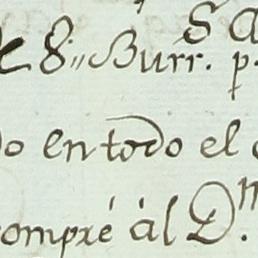 8,, Burr. p.
do en todo el
compré àl D.ⁿ